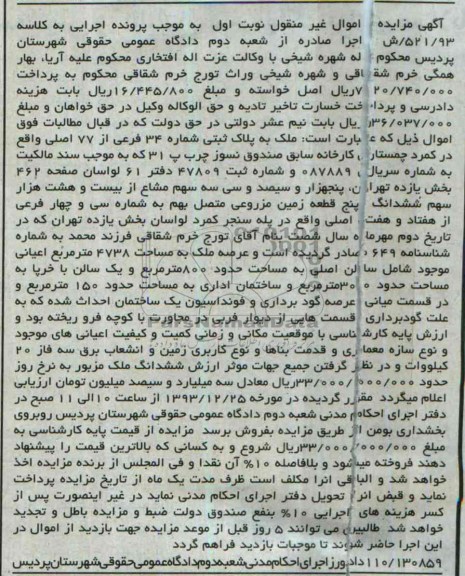 آگهی مزایده اموال غیر منقول نوبت اول به موجب پرونده اجرایی به کلاسه
۵۲۱/۹۳/ش اجرا صادره از شعبه دوم دادگاه عمومی حقوقی شهرستان
پردیس محکوم له شهره شیخی با وکالت عزت اله افتخاری محکوم علیه آریا، بهار
همگی خرم شقاقی و شهره شیخی وراث تورج خرم شقاقی محکوم به پرداخت
۷۲۰/۷۴۰/۰۰۰ریال اصل خواسته و مبلغ ۱۶/۴۴۵/۸۰۰ریال بابت هزینه
دادرسی و پرداخت خسارت تاخیر تادیه و حق الوکاله وکیل در حق خواهان و مبلغ
۳۶/۰۳۷/۰۰۰ریال بابت نیم عشر دولتی در حق دولت که در قبال مطالبات فوق
اموال ذیل که عبارت است: ملک به پلاک ثبتی شماره ۳۴ فرعی از ۷۷ اصلی واقع
در کمرد چمستان کارخانه سابق صندوق نسوز چرب پ ۳۱ که به موجب سند مالکیت
به شماره سریال ۰۸۷۸۸۹ و شماره ثبت ۴۷۸۰۹ دفتر ۶۱ لواسان صفحه ۴۶۲
بخش یازده تهران، پنجهزار و سیصد و سی سه سهم مشاع از بیست و هشت هزار
سهم ششدانگ پنج قطعه زمین مزروعی متصل بهم به شماره سی و چهار فرعی
از هفتاد و هفت اصلی واقع در پله سنجر کمرد لواسان بخش یازده تهران که در
تاریخ دوم مهرماه سال شصت بنام آقای تورج خرم شقاقی فرزند محمد به شماره
شناسنامه ۶۴۹ صادر گردیده است و عرصه ملک به مساحت ۴۷۳۸ مترمربع اعیانی
موجود شامل سالن اصلی به مساحت حدود ۸۰۰مترمربع و یک سالن با خرپا به
مساحت حدود ۳۰۰مترمربع و ساختمان اداری به مساحت حدود ۱۵۰ مترمربع و
در قسمت میانی عرصه گود برداری و فونداسیون یک ساختمان احداث شده که به
علت گودبرداری قسمت هایی از دیوار غربی در مجاورت با کوچه فرو ریخته بود و
ارزش پایه کارشناسی با موقعیت مکانی و زمانی کمیت و کیفیت اعیانی های موجود
و نوع سازه معماری و قدمت بناها و نوع کاربری زمین و انشعاب برق سه فاز ۲۰
کیلووات و در نظر گرفتن جمیع جهات موثر ارزش ششدانگ ملک مزبور به نرخ روز
حدود ۳۳/۰۰۰/۰۰۰/۰۰۰ریال معادل سه میلیارد و سیصد میلیون تومان ارزیابی
اعلام میگردد مقرر گردیده در مورخه ۱۳۹۳/۱۲/۲۵ از ساعت ۱۰الی ۱۱ صبح در
دفتر اجرای احکام مدنی شعبه دوم دادگاه عمومی حقوقی شهرستان پردیس روبروی
بخشداری بومهن از طریق مزایده بفروش برسد مزایده از قیمت پایه کارشناسی به
مبلغ ۳۳/۰۰۰/۰۰۰/۰۰۰ریال شروع و به کسانی که بالاترین قیمت را پیشنهاد
دهند فروخته میشود و بلافاصله ۱۰% آن نقدا و فی المجلس از برنده مزایده اخذ
خواهد شد و الباقی انرا مکلف است ظرف مدت یک ماه از تاریخ مزایده پرداخت
نماید و قبض انرا تحویل دفتر اجرای احکام مدنی نماید در غیر اینصورت پس از
کسر هزینه های اجرایی ۱۰% بنفع صندوق دولت ضبط و مزایده باطل و تجدید
خواهد شد طالبین می توانند ۵ روز قبل از موعد مزایده جهت بازدید از اموال در
این اجرا حاضر شوند تا موجبات بازدید فراهم گردد
۱۱۰/۱۳۰۸۵۹ دادورز اجرای احکام مدنی شعبه دوم دادگاه عمومی حقوقی شهرستان پردیس